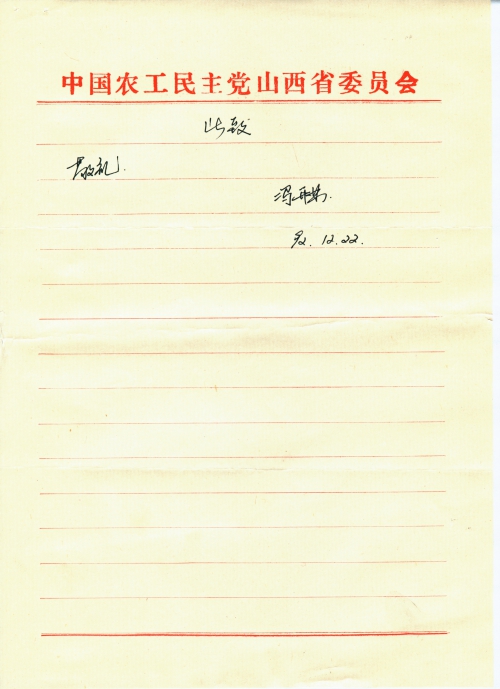 中国农工民主党山西省委员会
此致
敬礼.
92.12.22.